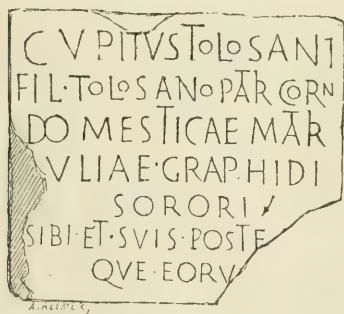 CVPITVSTOLOSANI
FIL·TOLOSANOPAR CORN
DOMESTICAE MAR
VLIAE·GRAPHIDI
SORORI
SIBI·ET·SVIS·POSTE
QVE·EORV